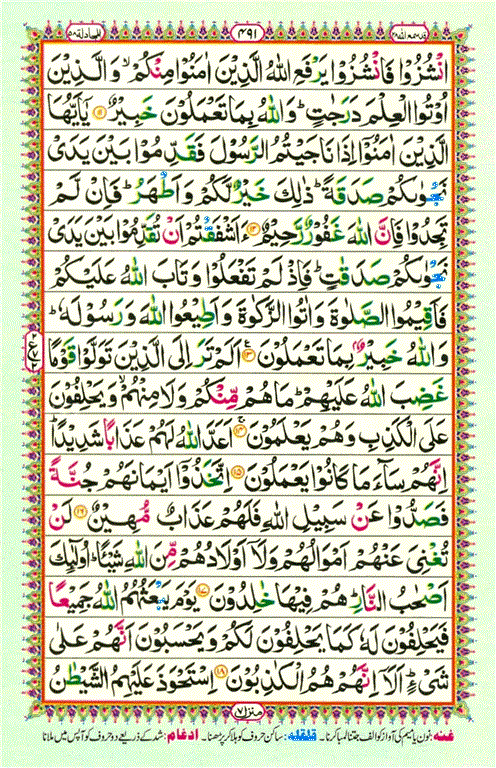 قد سمع الله ۲۸
۴۹۱
المجادلة ۵۸
انْشُزُوْا فَانْشُزُوْا يَرْفَعِ اللّٰهُ الَّذِيْنَ اٰمَنُوْا مِنْكُمْ ۙ وَالَّذِيْنَ
اُوْتُوا الْعِلْمَ دَرَجٰتٍ ؕ وَاللّٰهُ بِمَا تَعْمَلُوْنَ خَبِيْرٌ ﴿۱۱﴾ يٰۤاَيُّهَا
الَّذِيْنَ اٰمَنُوْۤا اِذَا نَاجَيْتُمُ الرَّسُوْلَ فَقَدِّمُوْا بَيْنَ يَدَيْ
نَجْوٰىكُمْ صَدَقَةً ؕ ذٰلِكَ خَيْرٌ لَّكُمْ وَاَطْهَرُ ؕ فَاِنْ لَّمْ
تَجِدُوْا فَاِنَّ اللّٰهَ غَفُوْرٌ رَّحِيْمٌ ﴿۱۲﴾ ءَاَشْفَقْتُمْ اَنْ تُقَدِّمُوْا بَيْنَ يَدَيْ
نَجْوٰىكُمْ صَدَقٰتٍ ؕ فَاِذْ لَمْ تَفْعَلُوْا وَتَابَ اللّٰهُ عَلَيْكُمْ
فَاَقِيْمُوا الصَّلٰوةَ وَاٰتُوا الزَّكٰوةَ وَاَطِيْعُوا اللّٰهَ وَرَسُوْلَهٗ ؕ
وَاللّٰهُ خَبِيْرٌۢ بِمَا تَعْمَلُوْنَ ﴿۱۳﴾ اَلَمْ تَرَ اِلَى الَّذِيْنَ تَوَلَّوْا قَوْمًا
غَضِبَ اللّٰهُ عَلَيْهِمْ ؕ مَا هُمْ مِّنْكُمْ وَلَا مِنْهُمْ ۙ وَيَحْلِفُوْنَ
عَلَى الْكَذِبِ وَهُمْ يَعْلَمُوْنَ ﴿۱۴﴾ اَعَدَّ اللّٰهُ لَهُمْ عَذَابًا شَدِيْدًا ؕ
اِنَّهُمْ سَآءَ مَا كَانُوْا يَعْمَلُوْنَ ﴿۱۵﴾ اِتَّخَذُوْۤا اَيْمَانَهُمْ جُنَّةً
فَصَدُّوْا عَنْ سَبِيْلِ اللّٰهِ فَلَهُمْ عَذَابٌ مُّهِيْنٌ ﴿۱۶﴾ لَنْ
تُغْنِيَ عَنْهُمْ اَمْوَالُهُمْ وَلَاۤ اَوْلَادُهُمْ مِّنَ اللّٰهِ شَيْـًٔا ؕ اُولٰٓئِكَ
اَصْحٰبُ النَّارِ ؕ هُمْ فِيْهَا خٰلِدُوْنَ ﴿۱۷﴾ يَوْمَ يَبْعَثُهُمُ اللّٰهُ جَمِيْعًا
فَيَحْلِفُوْنَ لَهٗ كَمَا يَحْلِفُوْنَ لَكُمْ وَيَحْسَبُوْنَ اَنَّهُمْ عَلٰى
شَيْءٍ ؕ اَلَاۤ اِنَّهُمْ هُمُ الْكٰذِبُوْنَ ﴿۱۸﴾ اِسْتَحْوَذَ عَلَيْهِمُ الشَّيْطٰنُ
منزل ۷
غنه: نون یا میم کی آواز کو الف جتنا لمبا کرنا۔ قلقله: ساکن حروف کو ہلا کر پڑھنا۔ ادغام: شد کے ذریعے دو حروف کو آپس میں ملانا